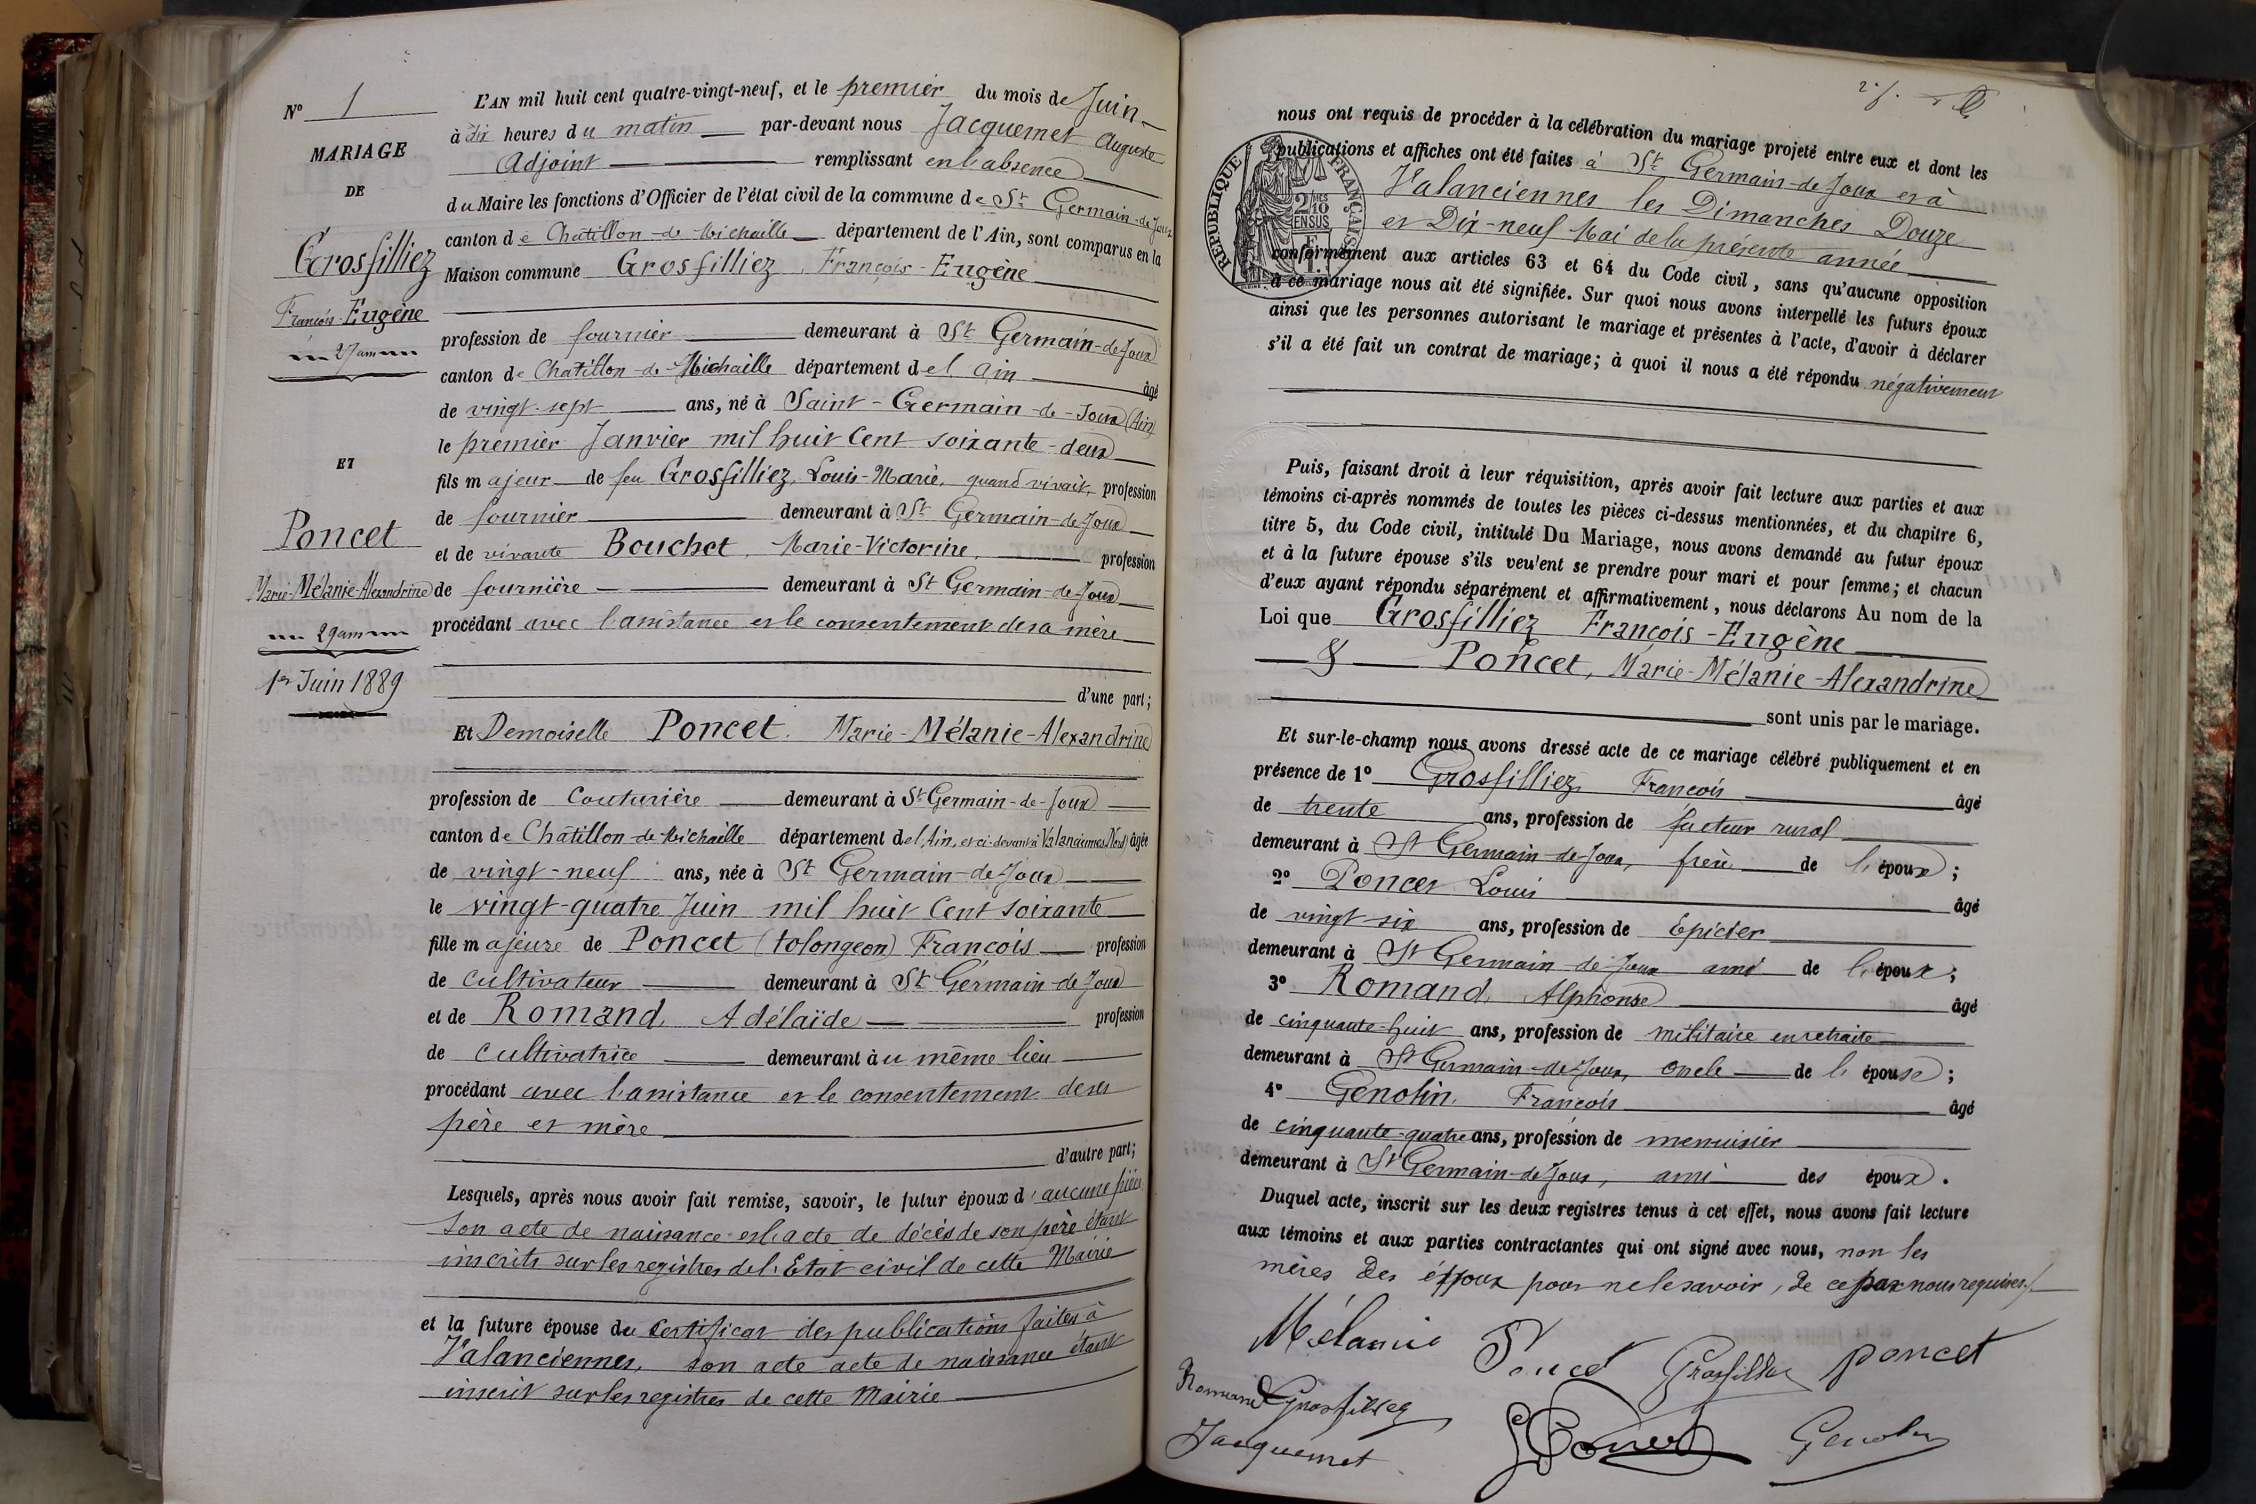 N° 1
MARIAGE
DE
Grosfilliez
François-Eugène
27 ans
ET
Poncet
Marie-Mélanie-Alexandrine
29 ans
1er Juin 1889
L'AN mil huit cent quatre-vingt-neuf, et le premier du mois de Juin
à dix heures du matin par-devant nous Jacquemet Auguste
Adjoint remplissant en l'absence
du Maire les fonctions d'Officier de l'état civil de la commune de St Germain-de-Joux
canton de Chatillon-de-Michaille département de l'Ain, sont comparus en la
Maison commune Grosfilliez, François-Eugène
profession de fournier demeurant à St Germain-de-Joux
canton de Chatillon-de-Michaille département de l'Ain âgé
de vingt-sept ans, né à Saint-Germain-de-Joux (Ain)
le premier Janvier mil huit Cent soixante-deux
fils majeur de feu Grosfilliez, Louis-Marie, quand vivait, profession
de fournier demeurant à St Germain-de-Joux
et de vivante Bouchet, Marie-Victorine, profession
de fournière demeurant à St Germain-de-Joux
procédant avec l'assistance et le consentement de sa mère
d'une part;
Et Demoiselle Poncet, Marie-Mélanie-Alexandrine
profession de Couturière demeurant à St Germain-de-Joux
canton de Chatillon-de-Michaille département de l'Ain, et ci-devant à Valanciennes (Nord) âgée
de vingt-neuf ans, née à St Germain-de-Joux
le vingt-quatre Juin mil huit Cent soixante
fille majeure de Poncet (tolongeon) François profession
de cultivateur demeurant à St Germain-de-Joux
et de Romand, Adélaïde profession
de cultivatrice demeurant au même lieu
procédant avec l'assistance et le consentement de ses
père et mère
d'autre part;
Lesquels, après nous avoir fait remise, savoir, le futur époux d'aucune pièce
son acte de naissance et l'acte de décès de son père étant
inscrits sur les registres de l'Etat civil de cette Mairie
et la future épouse du Certificat des publications faites à
Valanciennes, son acte acte de naissance étant
inscrit sur les registres de cette Mairie
nous ont requis de procéder à la célébration du mariage projeté entre eux et dont les
publications et affiches ont été faites à St Germain-de-Joux et à
Valanciennes les Dimanches Douze
et Dix-neuf Mai de la présente année
conformément aux articles 63 et 64 du Code civil, sans qu'aucune opposition
à ce mariage nous ait été signifiée. Sur quoi nous avons interpellé les futurs époux
ainsi que les personnes autorisant le mariage et présentes à l'acte, d'avoir à déclarer
s'il a été fait un contrat de mariage; à quoi il nous a été répondu négativement
RÉPUBLIQUE FRANÇAISE
2/10
EN SUS
Puis, faisant droit à leur réquisition, après avoir fait lecture aux parties et aux
témoins ci-après nommés de toutes les pièces ci-dessus mentionnées, et du chapitre 6,
titre 5, du Code civil, intitulé Du Mariage, nous avons demandé au futur époux
et à la future épouse s'ils veulent se prendre pour mari et pour femme; et chacun
d'eux ayant répondu séparément et affirmativement, nous déclarons Au nom de la
Loi que Grosfilliez François-Eugène
& Poncet, Marie-Mélanie-Alexandrine
sont unis par le mariage.
Et sur-le-champ nous avons dressé acte de ce mariage célébré publiquement et en
présence de 1° Grosfilliez, François âgé
de trente ans, profession de facteur rural
demeurant à St Germain-de-Joux, frère de l'époux;
2° Poncet Louis âgé
de vingt six ans, profession de Epicier
demeurant à St Germain-de-Joux ami de l'époux;
3° Romand, Alphonse âgé
de cinquante-huit ans, profession de militaire en retraite
demeurant à St Germain-de-Joux, oncle de l'épouse;
4° Genolin, François âgé
de cinquante-quatre ans, profession de menuisier
demeurant à St Germain-de-Joux, ami des époux.
Duquel acte, inscrit sur les deux registres tenus à cet effet, nous avons fait lecture
aux témoins et aux parties contractantes qui ont signé avec nous, non les
mères des époux pour ne le savoir, de ce par nous requises
Mélanie Poncet Grosfilliez Poncet
Romand Grosfilliez
Jacquemet Genolin